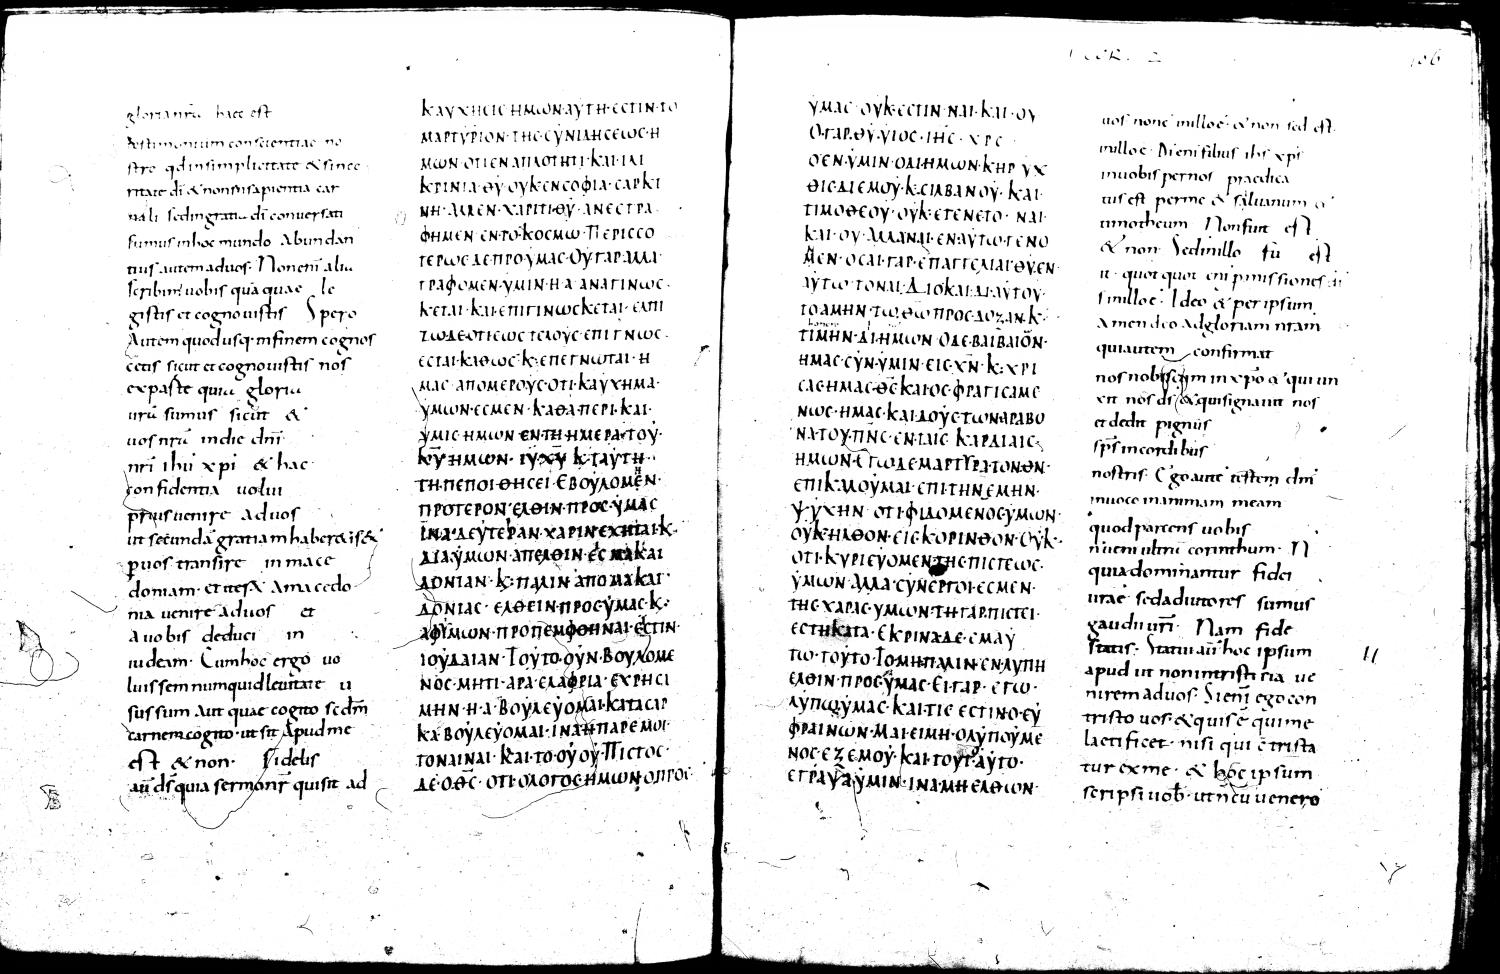 gloria nrā haec est
testimonium conscientiae no
stre qd insimplicitate & since
ritate dī & non insapientia car
nali sedingratia dī conversati
sumus inhoc mundo Abundan
tius autem aduos. Non enī alia
scribim uobis quā quae le
gistis et cognouistis Spero
Autem quod usq. infinem cognos
cetis sicut et cognouistis nos
exparte quia gloria
urā sumus sicut &
uos nrā indie dnī
nrī ihu xpi & hac
confidentia volui
prius venire aduos
ut secundā gratiam haber&is &
puos transire inmace
doniam. et iterū Amacedo
nia venire aduos et
auobis deduci in
iudeam. Cumhoc ergo vo
luissem numquid leuitate u
sus sum Aut quae cogito secdm
carnem cogito. ut sit Apud me
est & non. Fidelis
aū ds quia sermo nr qui sit ad
ΚΑΥΧΗCΙC ΗΜωΝ·ΑΥΤΗ·ΕCΤΙΝ·ΤΟ
ΜΑΡΤΥΡΙΟΝ·ΤΗC·CΥΝΙΔΗCΕωC·Η
ΜωΝ·ΟΤΙ·ΕΝΑΠΛΟΤΗΤΙ·ΚΑΙ·ΙΛΙ
ΚΡΙΝΙΑ·ΘΥ·ΟΥΚ·ΕΝCΟΦΙΑ·CΑΡΚΙ
ΝΗ·ΑΛΛΕΝ·ΧΑΡΙΤΙ·ΘΥ·ΑΝΕCΤΡΑ
ΦΗΜΕΝ·ΕΝ·ΤΟ·ΚΟCΜω·ΠΕΡΙCCΟ
ΤΕΡωC·ΔΕ·ΠΡΟ·ΥΜΑC·ΟΥ·ΓΑΡ·ΑΛΛΑ·
ΓΡΑΦΟΜΕΝ·ΥΜΙΝ·Η·Α·ΑΝΑΓΙΝωC·
ΚΕΤΑΙ·ΚΑΙ·ΕΠΙΓΙΝωCΚΕΤΑΙ·ΕΛΠΙ
ΖωΔΕ·ΟΤΙ·ΕωC·ΤΕΛΟΥC·ΕΠΙΓΝωC·
ΕCΤΑΙ·ΚΑΘωC·Κ·ΕΠΕΓΝωΤΑΙ·Η
ΜΑC·ΑΠΟΜΕΡΟΥC·ΟΤΙ·ΚΑΥΧΗΜΑ·
ΥΜωΝ·ΕCΜΕΝ·ΚΑΘΑΠΕΡΙ·ΚΑΙ·
ΥΜΙC·ΗΜωΝ·ΕΝ·ΤΗ·ΗΜΕΡΑ·ΤΟΥ·
ΚΥ·ΗΜωΝ·ΙΥ·ΧΥ·Κ·ΤΑΥΤΗ·
ΤΗ·ΠΕΠΟΙΘΗCΕΙ·ΕΒΟΥΛΟΜΕΝ·
ΠΡΟΤΕΡΟΝ·ΕΛΘΙΝ·ΠΡΟC·ΥΜΑC
ΙΝΑ·ΔΕΥΤΕΡΑΝ·ΧΑΡΙΝ·ΕΧΗΤΑΙ·Κ·
ΔΙΑ·ΥΜωΝ·ΑΠΕΛΘΙΝ·ΕC·ΜΑΚΑΙ
ΔΟΝΙΑΝ·Κ·ΠΑΛΙΝ·ΑΠΟ·ΜΑΚΑΙ
ΔΟΝΙΑC·ΕΛΘΕΙΝ·ΠΡΟC·ΥΜΑC·Κ·
ΑΦ·ΥΜωΝ·ΠΡΟΠΕΜΦΘΗΝΑΙ·ΕCΤΙΝ·
ΙΟΥΔΑΙΑΝ·ΤΟΥΤΟ·ΟΥΝ·ΒΟΥΛΟΜΕ
ΝΟC·ΜΗΤΙ·ΑΡΑ·ΕΛΑΦΡΙΑ·ΕΧΡΗCΙ
ΜΗΝ·Η·Α·ΒΟΥΛΕΥΟΜΑΙ·ΚΑΤΑCΑΡ
ΚΑ·ΒΟΥΛΕΥΟΜΑΙ·ΙΝΑ·Η·ΠΑΡΕΜΟΙ·
ΤΟΝΑΙΝΑΙ·ΚΑΙ·ΤΟ·ΟΥ·ΟΥ·ΠΙCΤΟC·
ΔΕ·Ο·ΘC·ΟΤΙ·ΟΛΟΓΟC·ΗΜωΝ·ΟΠΡΟC·
106
ΥΜΑC·ΟΥΚ·ΕCΤΙΝ·ΝΑΙ·ΚΑΙ·ΟΥ
Ο·ΓΑΡ·ΘΥ·ΥΙΟC·ΙΗC·ΧΡC
ΟΕΝ·ΥΜΙΝ·ΟΔΙΗΜωΝ·ΚΗΡΥΧ
ΘΙC·ΔΙΕΜΟΥ·Κ·CΙΛΒΑΝΟΥ·ΚΑΙ·
ΤΙΜΟΘΕΟΥ·ΟΥΚ·ΕΓΕΝΕΤΟ·ΝΑΙ·
ΚΑΙ·ΟΥ·ΑΛΛΑΝΑΙ·ΕΝ·ΑΥΤω·ΓΕΓΟ
ΝΕΝ·ΟCΑΙ·ΓΑΡ·ΕΠΑΓΓΕΛΙΑΙ·ΘΥ·ΕΝ·
ΑΥΤω·ΤΟΝΑΙ·ΔΙΟΚΑΙ·ΔΙ·ΑΥΤΟΥ·
ΤΟΑΜΗΝ·Τω·Θω·ΠΡΟC·ΔΟΖΑΝ·Κ·
ΤΙΜΗΝ·ΔΙΗΜωΝ·ΟΔΕ·ΒΑΙΒΑΙΟΝ·
ΗΜΑC·CΥΝ·ΥΜΙΝ·ΕΙC·ΧΝ·Κ·ΧΡΙ
CΑC·ΗΜΑC·ΘC·ΚΑΙ·ΟC·ΦΡΑΓΙCΑΜΕ
ΝωC·ΗΜΑC·ΚΑΙ·ΔΟΥC·ΤωΝ·ΑΡΑΒΟ
ΝΑ·ΤΟΥ·ΠΝC·ΕΝ·ΤΑΙC·ΚΑΡΔΙΑΙC·
ΗΜωΝ·ΕΓωΔΕ·ΜΑΡΤΥΡΑ·ΤΟΝΘΝ·
ΕΠΙΚΑΛΟΥΜΑΙ·ΕΠΙ·ΤΗΝ·ΕΜΗΝ·
ΨΥΧΗΝ·ΟΤΙ·ΦΙΔΟΜΕΝΟC·ΥΜωΝ·
ΟΥΚ·ΗΛΘΟΝ·ΕΙC·ΚΟΡΙΝΘΟΝ·ΟΥΚ·
ΟΤΙ·ΚΥΡΙΕΥΟΜΕΝ·ΤΗC·ΠΙCΤΕωC·
ΥΜωΝ·ΑΛΛΑ·CΥΝΕΡΓΟΙ·ΕCΜΕΝ·
ΤΗC·ΧΑΡΑC·ΥΜωΝ·ΤΗ·ΓΑΡ·ΠΙCΤΕΙ·
ΕCΤΗΚΑΤΑ·ΕΚΡΙΝΑ·ΔΕ·ΕΜΑΥ
Τω·ΤΟΥΤΟ·ΤΟ·ΜΗ·ΠΑΛΙΝ·ΕΝ·ΛΥΠΗ
ΕΛΘΙΝ·ΠΡΟC·ΥΜΑC·ΕΙ·ΓΑΡ·ΕΓω·
ΛΥΠω·ΥΜΑC·ΚΑΙ·ΤΙC·ΕCΤΙΝ·Ο·ΕΥ
ΦΡΑΙΝωΝ·ΜΑΙ·ΕΙΜΗ·Ο·ΛΥΠΟΥΜΕ
ΝΟC·ΕΞ·ΕΜΟΥ·ΚΑΙ·ΤΟΥΤ·ΑΥΤΟ·
ΕΓΡΑΨΑ·ΥΜΙΝ·ΙΝΑ·ΜΗ·ΕΛΘωΝ·
uos non ē inilloē. & non sed est.
inilloē. Di enī filius ihs xps
inuobis per nos praedica
tus est per me & silvanum &
timotheum Nonfuit est
& non. Sedinillo fu est
ū. quotquot enī pmissiones di
inilloē. Ideo & per ipsum
amen deo Adgloriam nram
qui autem confirmat
nos nobiscum in xpo & qui un
xit nos ds & qui signauit nos
et dedit pignus
sps incordibus
nostris. Ego autē testem dm
inuoco in animam meam
quod parcens uobis
n veni ultra corinthum. N
quia dominantur fidei
urae sed adiutores sumus
gaudii urī. Nam fide
statis. Statui aū hoc ipsum
apud ut non in tristitia ve
nirem aduos. Si enī ego con
tristo uos & quis ē qui me
laetificet. nisi qui ē trista
tur ex me. & hoc ipsum
scripsi uob. ut n cu uenero